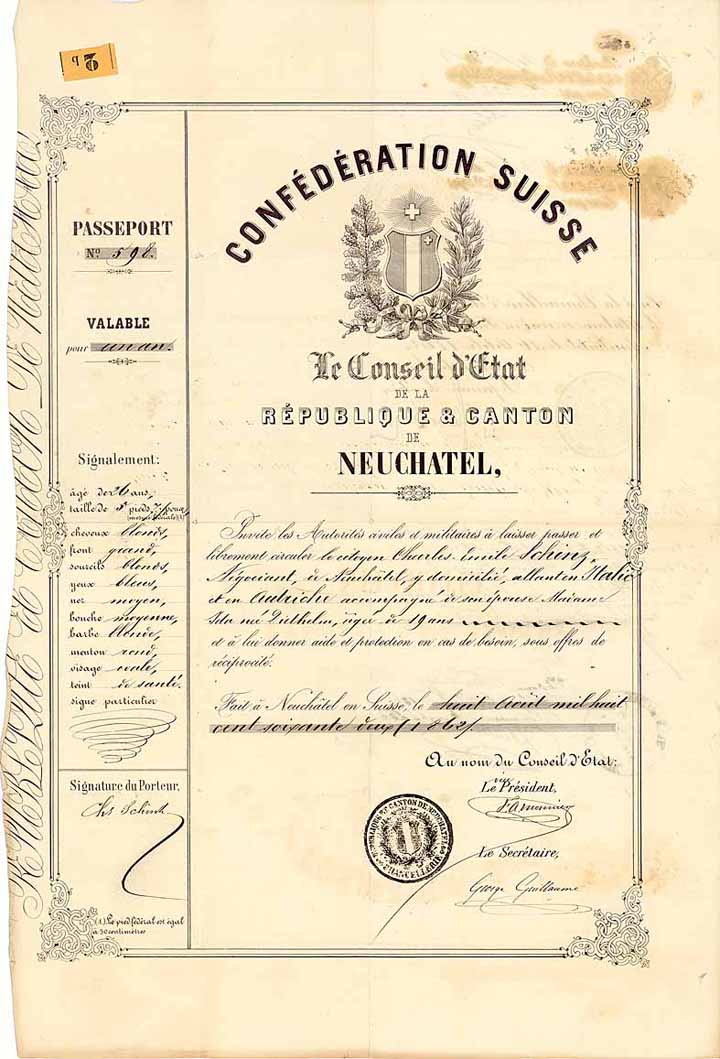 5 b
PASSEPORT
No 598.
VALABLE
pour un an.
Signalement:
âgé de 26 ans,
taille de 5 pieds 7 pouces
(mesure fédérale) (1)
cheveux blonds,
front grand,
sourcils blonds,
yeux bleus,
nez moyen,
bouche moyenne,
barbe blonde,
menton rond,
visage ovale,
teint de santé.
signe particulier
Signature du Porteur,
Chs Schenk
(1) Le pied fédéral est égal
à 30 centimètres
CONFÉDÉRATION SUISSE
Le Conseil d'Etat
DE LA
RÉPUBLIQUE & CANTON
DE
NEUCHATEL,
Invite les Autorités civiles et militaires à laisser passer et
librement circuler le citoyen Charles Emile Schenz,
Négociant, de Neuchâtel, y domicilié, allant en Italie
et en Autriche accompagné de son épouse Madame
née Diethelm, âgée de 19 ans
et à lui donner aide et protection en cas de besoin, sous offres de
réciprocité.
Fait à Neuchâtel en Suisse, le huit Août mil huit
cent soixante deux (1862).
Au nom du Conseil d'Etat:
Le vice Président,
Le Secrétaire,
George Guillaume
RÉPUBLIQUE ET CANTON DE NEUCHATEL
CHANCELLERIE